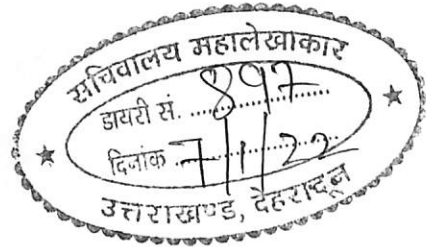 सचिवालय महालेखाकार
डायरी सं. ..... 897 .....
दिनांक ..... 7/1/22 .....
उत्तराखण्ड, देहरादून